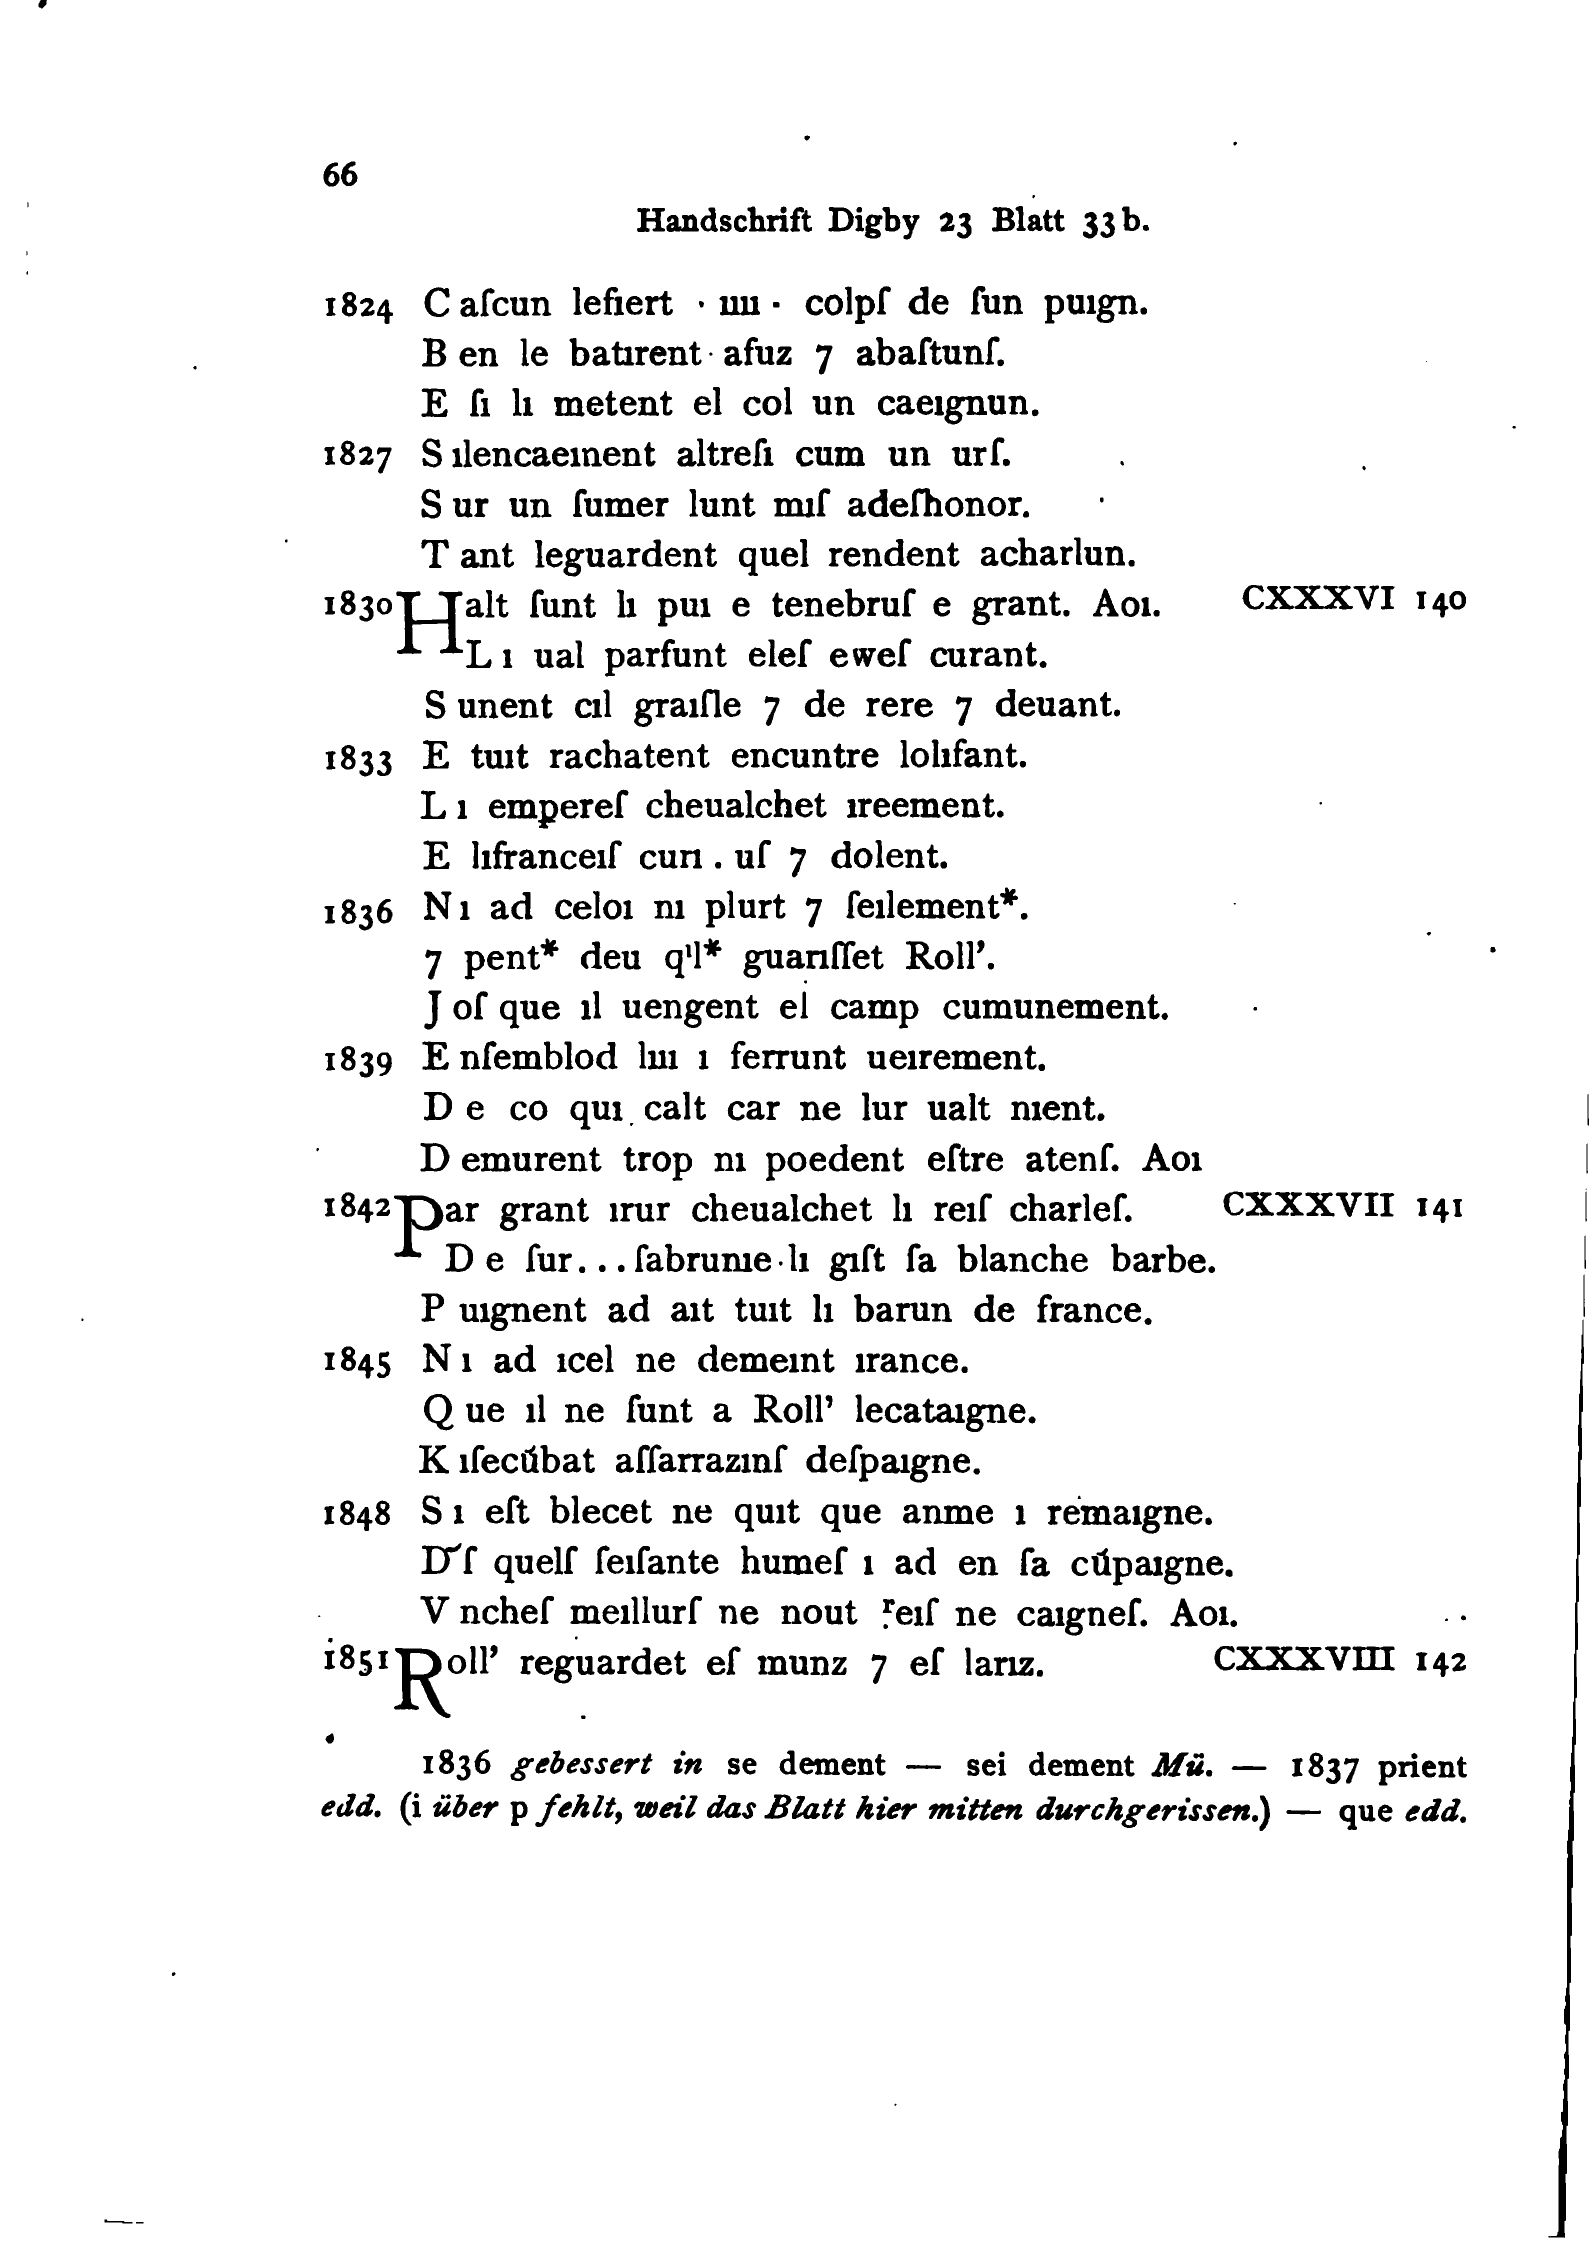 66
Handschrift Digby 23 Blatt 33b.
1824 C aſcun lefiert · ıııı · colpſ de ſun puıgn.
B en le batırent · afuz 7 abaſtunſ.
E ſı lı metent el col un caeıgnun.
1827 S ılencaeınent altreſı cum un urſ.
S ur un ſumer lunt mıſ adeſhonor.
T ant leguardent quel rendent acharlun.
1830 Halt ſunt lı puı e tenebruſ e grant. Aoı. CXXXVI 140
L ı ual parfunt eleſ eweſ curant.
S unent cıl graıſle 7 de rere 7 deuant.
1833 E tuıt rachatent encuntre lolıfant.
L ı empereſ cheualchet ıreement.
E lıfranceıſ curı . uſ 7 dolent.
1836 N ı ad celoı nı plurt 7 ſeılement*.
7 pent* deu qıl* guarıſſet Roll’.
J oſ que ıl uengent el camp cumunement.
1839 E nſemblod luı ı ferrunt ueırement.
D e co quı calt car ne lur ualt nıent.
D emurent trop nı poedent eſtre atenſ. Aoı
1842 Par grant ırur cheualchet lı reıſ charleſ. CXXXVII 141
D e ſur... ſabrunıe · lı gıſt ſa blanche barbe.
P uıgnent ad aıt tuıt lı barun de france.
1845 N ı ad ıcel ne demeınt ırance.
Q ue ıl ne ſunt a Roll’ lecataıgne.
K ıſecūbat aſſarrazınſ deſpaıgne.
1848 S ı eſt blecet ne quıt que anme ı remaıgne.
D’ſ quelſ ſeıſante humeſ ı ad en ſa cūpaıgne.
V ncheſ meıllurſ ne nout reıſ ne caıgneſ. Aoı.
1851 Roll’ reguardet eſ munz 7 eſ larız. CXXXVIII 142
1836 gebessert in se dement — sei dement Mü. — 1837 prient
edd. (i über p fehlt, weil das Blatt hier mitten durchgerissen.) — que edd.